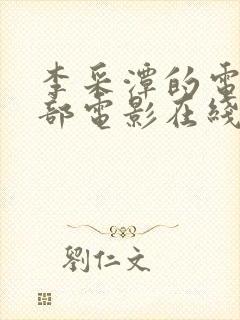 李采潭的電
部電影在綫
劉仁文